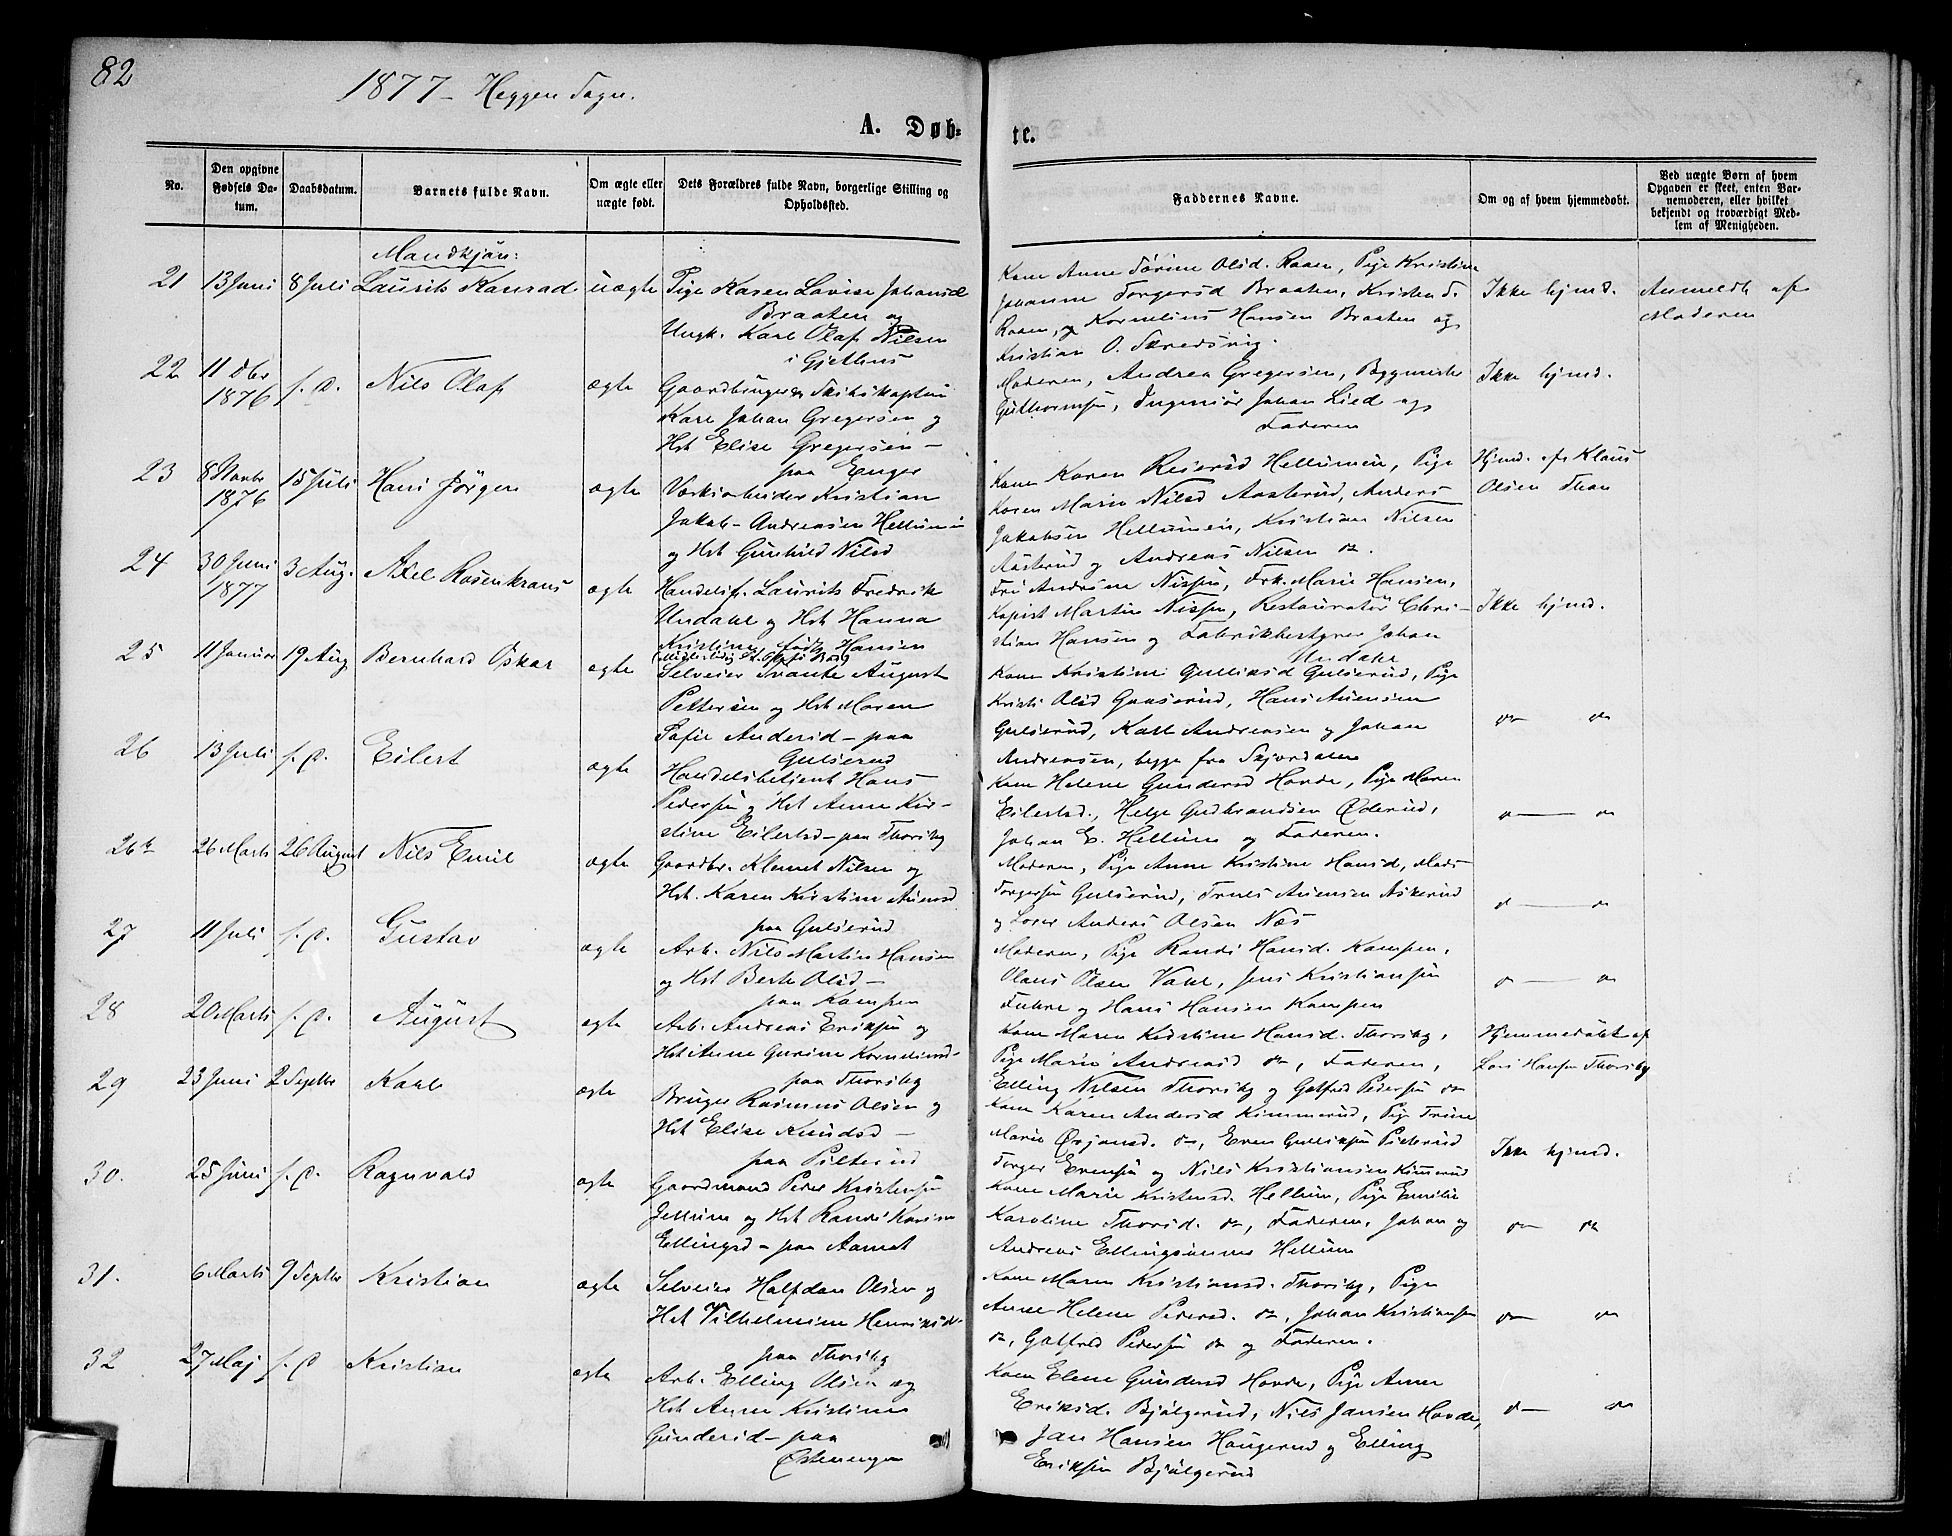 82
1877 – Heggen Sogn.
A. Døb-
te.
No.
Den opgivne Fødsels Datum.
Daabsdatum.
Barnets fulde Navn.
Om ægte eller uægte født.
Dets Forældres fulde Navn, borgerlige Stilling og Opholdssted.
Faddernes Navne.
Om og af hvem hjemmedøbt.
Ved uægte Børn af hvem Opgaven er skeet, enten Barnemoderen, eller hvilket bekjendt og troværdigt Medlem af Menigheden.
Mandkjøn:
21 13 Juni 8 Juli Laurits Konrad uægte Pige Karen Lovise Johansd
Braaten og
Ungk. Karl Olaf Nilsen
i Gjethus
Kone Anne Torine Olsd. Raaen, Pige Kristine
Johanne Torgersd Braaten, Kristen T.
Raaen, Kornelius Hansen Braaten og
Kristian O. Skredsvig.
Ikke hjmd.
Anmeldt af
Moderen
22 11 Dbr 1876 s. D. Nils Olaf ægte Gaardbruger og Skibskaptein
Karl Johan Gregersen og
Hst Elise Gregersen –
paa Enger
Moderen, Andrea Gregersen, Bygmester
Guthormsen, Ingeniør Johan Lied og
Faderen
Ikke hjmd.
23 8 Novbr 1876 15 Juli Hans Jørgen ægte Værksarbeider Kristian
Jakob Andreasen Hellumein
og Hst Gunhild Nilsd
Kone Karen Hellumein, Pige
Karen Marie Nilsd Aasterud, Anders
Jakobsen Hellumein, Kristian Nilsen
Aasterud og Andreas Nilsen do.
Hjmd. af Klaus
Olsen Thon
24 30 Juni 1877 3 Aug. Axel Rosenkrans ægte Handelsf. Laurits Fredrik
Undahl og Hst Hanna
Kristine født Hansen
Fru Andrine Nissen, Frk. Marie Hansen,
Kopist Martin Nissen, Restauratør Chri-
stian Hansen og Fabrikbestyrer Johan
Undahl
Ikke hjmd.
25 11 Januar 19 Aug. Bernhard Oskar ægte Selveier Svante August
Pettersen og Hst Maren
Sofie Andersd – paa
Gulserud
Kone Kristine Gulliksd Gulserud, Pige
Kristi Olsd Gunserud, Hans Amensen
Gulserud, Karl Andreasen og Johan
Andreasen, begge fra
do — do
26 13 Juli s. D. Eilert ægte Handelsbetjent Hans
Pedersen og Hst Anne Kir-
stine Eilertsd – paa Thorsby
Kone Helene Gundersd Hovde, Pige Maren
Eilertsd., Helge Gudbrandsen Øderud,
Johan E. Hellum og Faderen.
do — do
26b 26 Marts 26 August Nils Emil ægte Gaardbr. Klemet Nilsen og
Hst. Karen Kristine Amnsd
paa Gulserud
Moderen, Pige Anne Kristine Hansd, Mads
Torgersen Gulserud, Amensen Askerud
og Lærer Anders Olsen Næs
do — do
27 11 Juli s. D. Gustav ægte Arb. Nils Martin Hansen
og Hst Berte Olsd –
paa Kampen
Moderen, Pige Randi Hansd. Kampen,
Olaus Olsen Vahl, Jens Kristiansen
og Hans Hansen Kampen
do — do
28 20 Marts s. D. August ægte Arb. Andreas Eriksen og
Hst Anne Gurine Korneliusd –
paa Thorsby
Kone Maren Kristine Hansd. Thorsby,
Pige Marie Andreasd do, Faderen,
Elling Nilsen Thorsby og Gotfred Pedersen do
Hjemmedøbt af
Lars Hansen Thorsby
29 23 Juni 2 Septbr Karl ægte Bruger Rasmus Olsen og
Hst Elise Knudsd –
paa Pilterud
Kone Karen Andersd Kimmerud, Pige Trine
Marie Ørjansd. do, Even Gulliksen Pilterud
Torger Evensen og Nils Kristiansen Kimmerud
Ikke hjmd.
30. 25 Juni s. D. Ragnvald ægte Gaardmand Peder Kristensen
Jellum og Hst Randi Karine
Ellingsd – paa Aamot
Kone Marie Kristensd. Hellum, Pige Emilie
Karoline Thorsd. do, Faderen, Johan og
Andreas Ellingsønner Hellum
do — do
31. 6 Marts 9 Septbr Kristian ægte Selveier Halfdan Olsen og
Hst Vilhelmine Henriksd –
paa Thorsby
Kone Maren Kristiansd. Thorsby, Pige
Anne Helene Pedersd. do, Johan Kristiansen
do, Gotfred Pedersen do og Faderen.
do — do
32 27 Maj s. D Kristian ægte Arb. Elling Olsen og
Hst Anne Kristine
Gundersd – paa
Østenengen
Kone Elene Gundersd Hovde, Pige Anne
Eriksd. Bjølgerud, Nils Jansen Hovde,
Jan Hansen Haugerud og Elling
Eriksen Bjølgerud
do — do